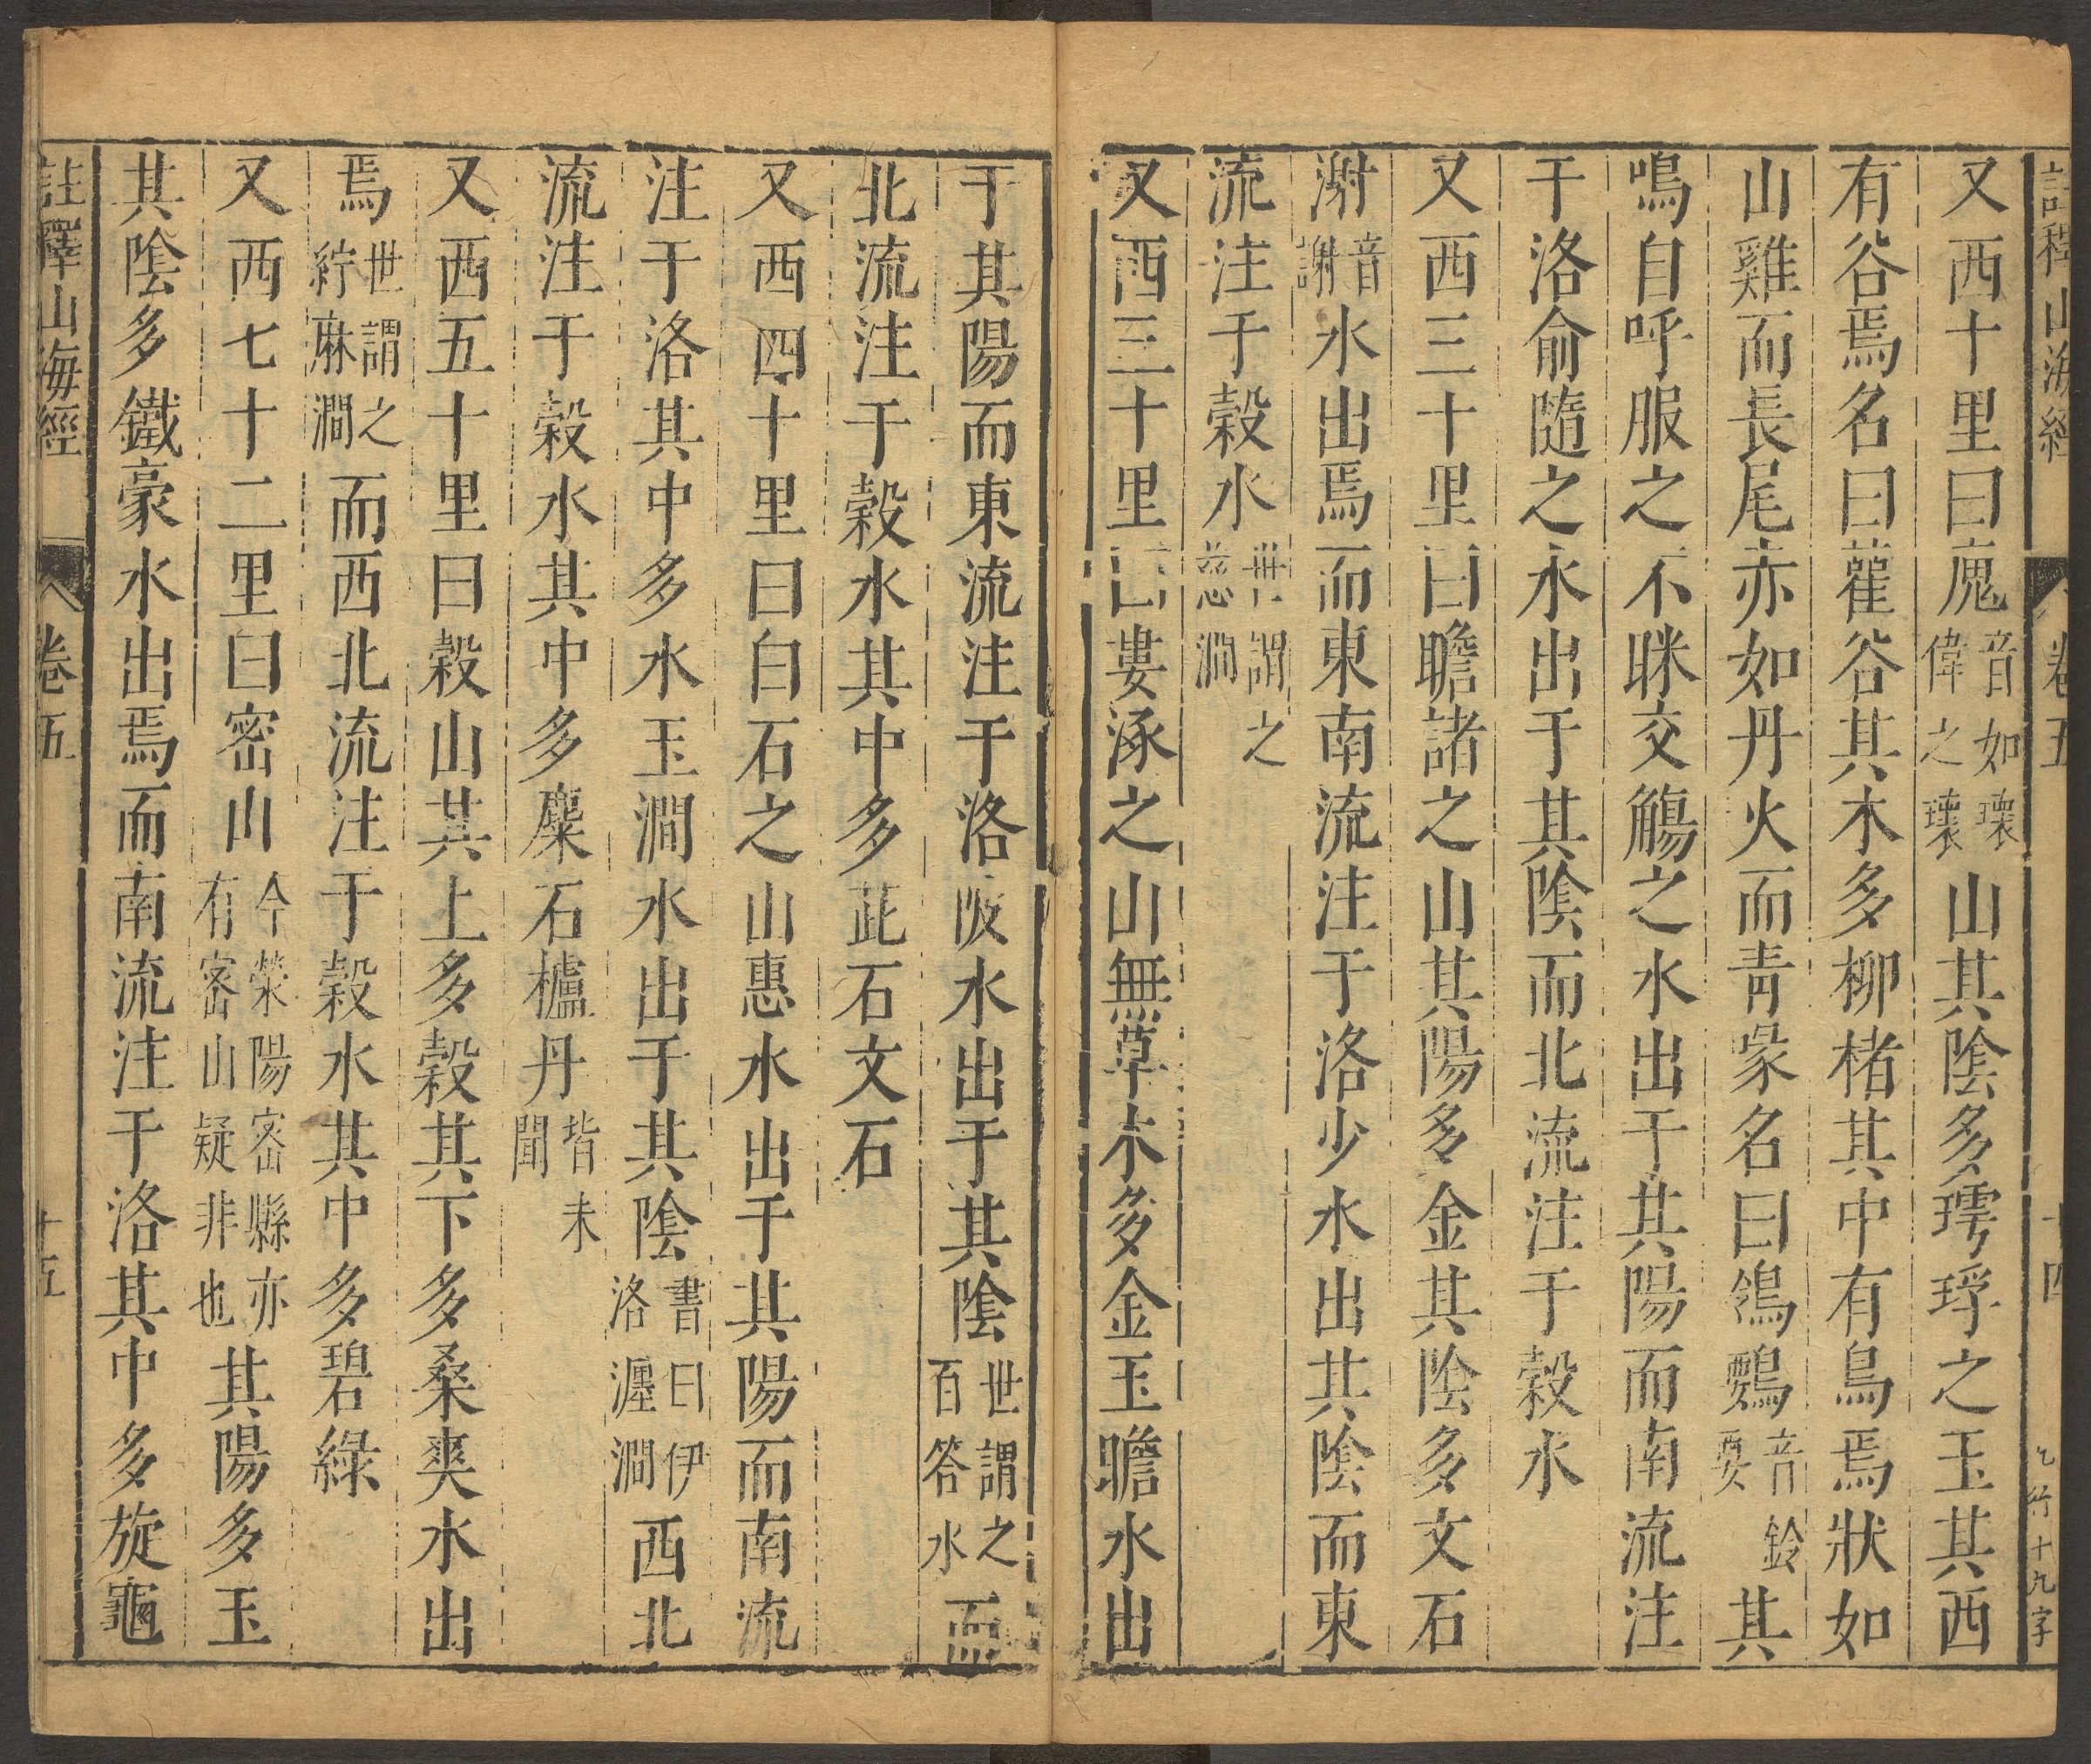 註釋山海經 卷五 十四 乙行十九字
又西十里曰廆音如瓌偉之瓌山其陰多㻬琈之玉其西
有谷焉名曰雚谷其木多柳楮其中有鳥焉狀如
山雞而長尾赤如丹火而青喙名曰鴒䴌音鈴要其
鳴自呼服之不眯交觴之水出于其陽而南流注
于洛俞隨之水出于其陰而北流注于穀水
又西三十里曰瞻諸之山其陽多金其陰多文石
㴬音謝水出焉而東南流注于洛少水出其陰而東
流注于穀水世謂之慈澗
又西三十里曰婁涿之山無草木多金玉瞻水出
于其陽而東流注于洛陂水出于其陰世謂之百答水而
北流注于穀水其中多茈石文石
又西四十里曰白石之山惠水出于其陽而南流
注于洛其中多水玉澗水出于其陰書曰伊洛瀍澗西北
流注于穀水其中多麋石櫨丹皆未聞
又西五十里曰穀山其上多穀其下多桑爽水出
焉世謂之紵麻澗而西北流注于穀水其中多碧綠
又西七十二里曰密山今滎陽密縣亦有密山疑非也其陽多玉
其陰多鐵豪水出焉而南流注于洛其中多旋龜
註釋山海經 卷五 十五